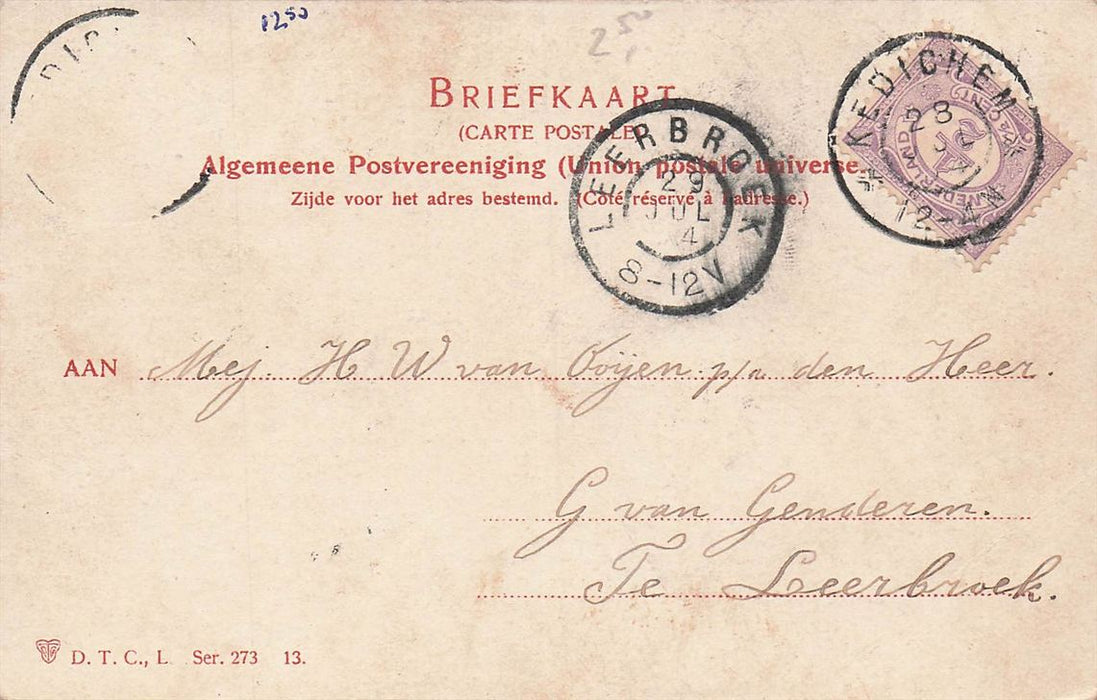 12⁵⁰
2⁵⁰
DIC
BRIEFKAART
(CARTE POSTALE)
Algemeene Postvereeniging (Union postale universe
Zijde voor het adres bestemd. (Côté réservé à l'adresse.)
LEERBROEK
29
JUL
4
8-12V
KEDICHEM
28
12-4N
NEDERLAND
2½ CENT
AAN Mej. H W van Ooijen p/a den Heer.
G van Genderen.
Te Leerbroek.
D. T. C., L. Ser. 273 13.